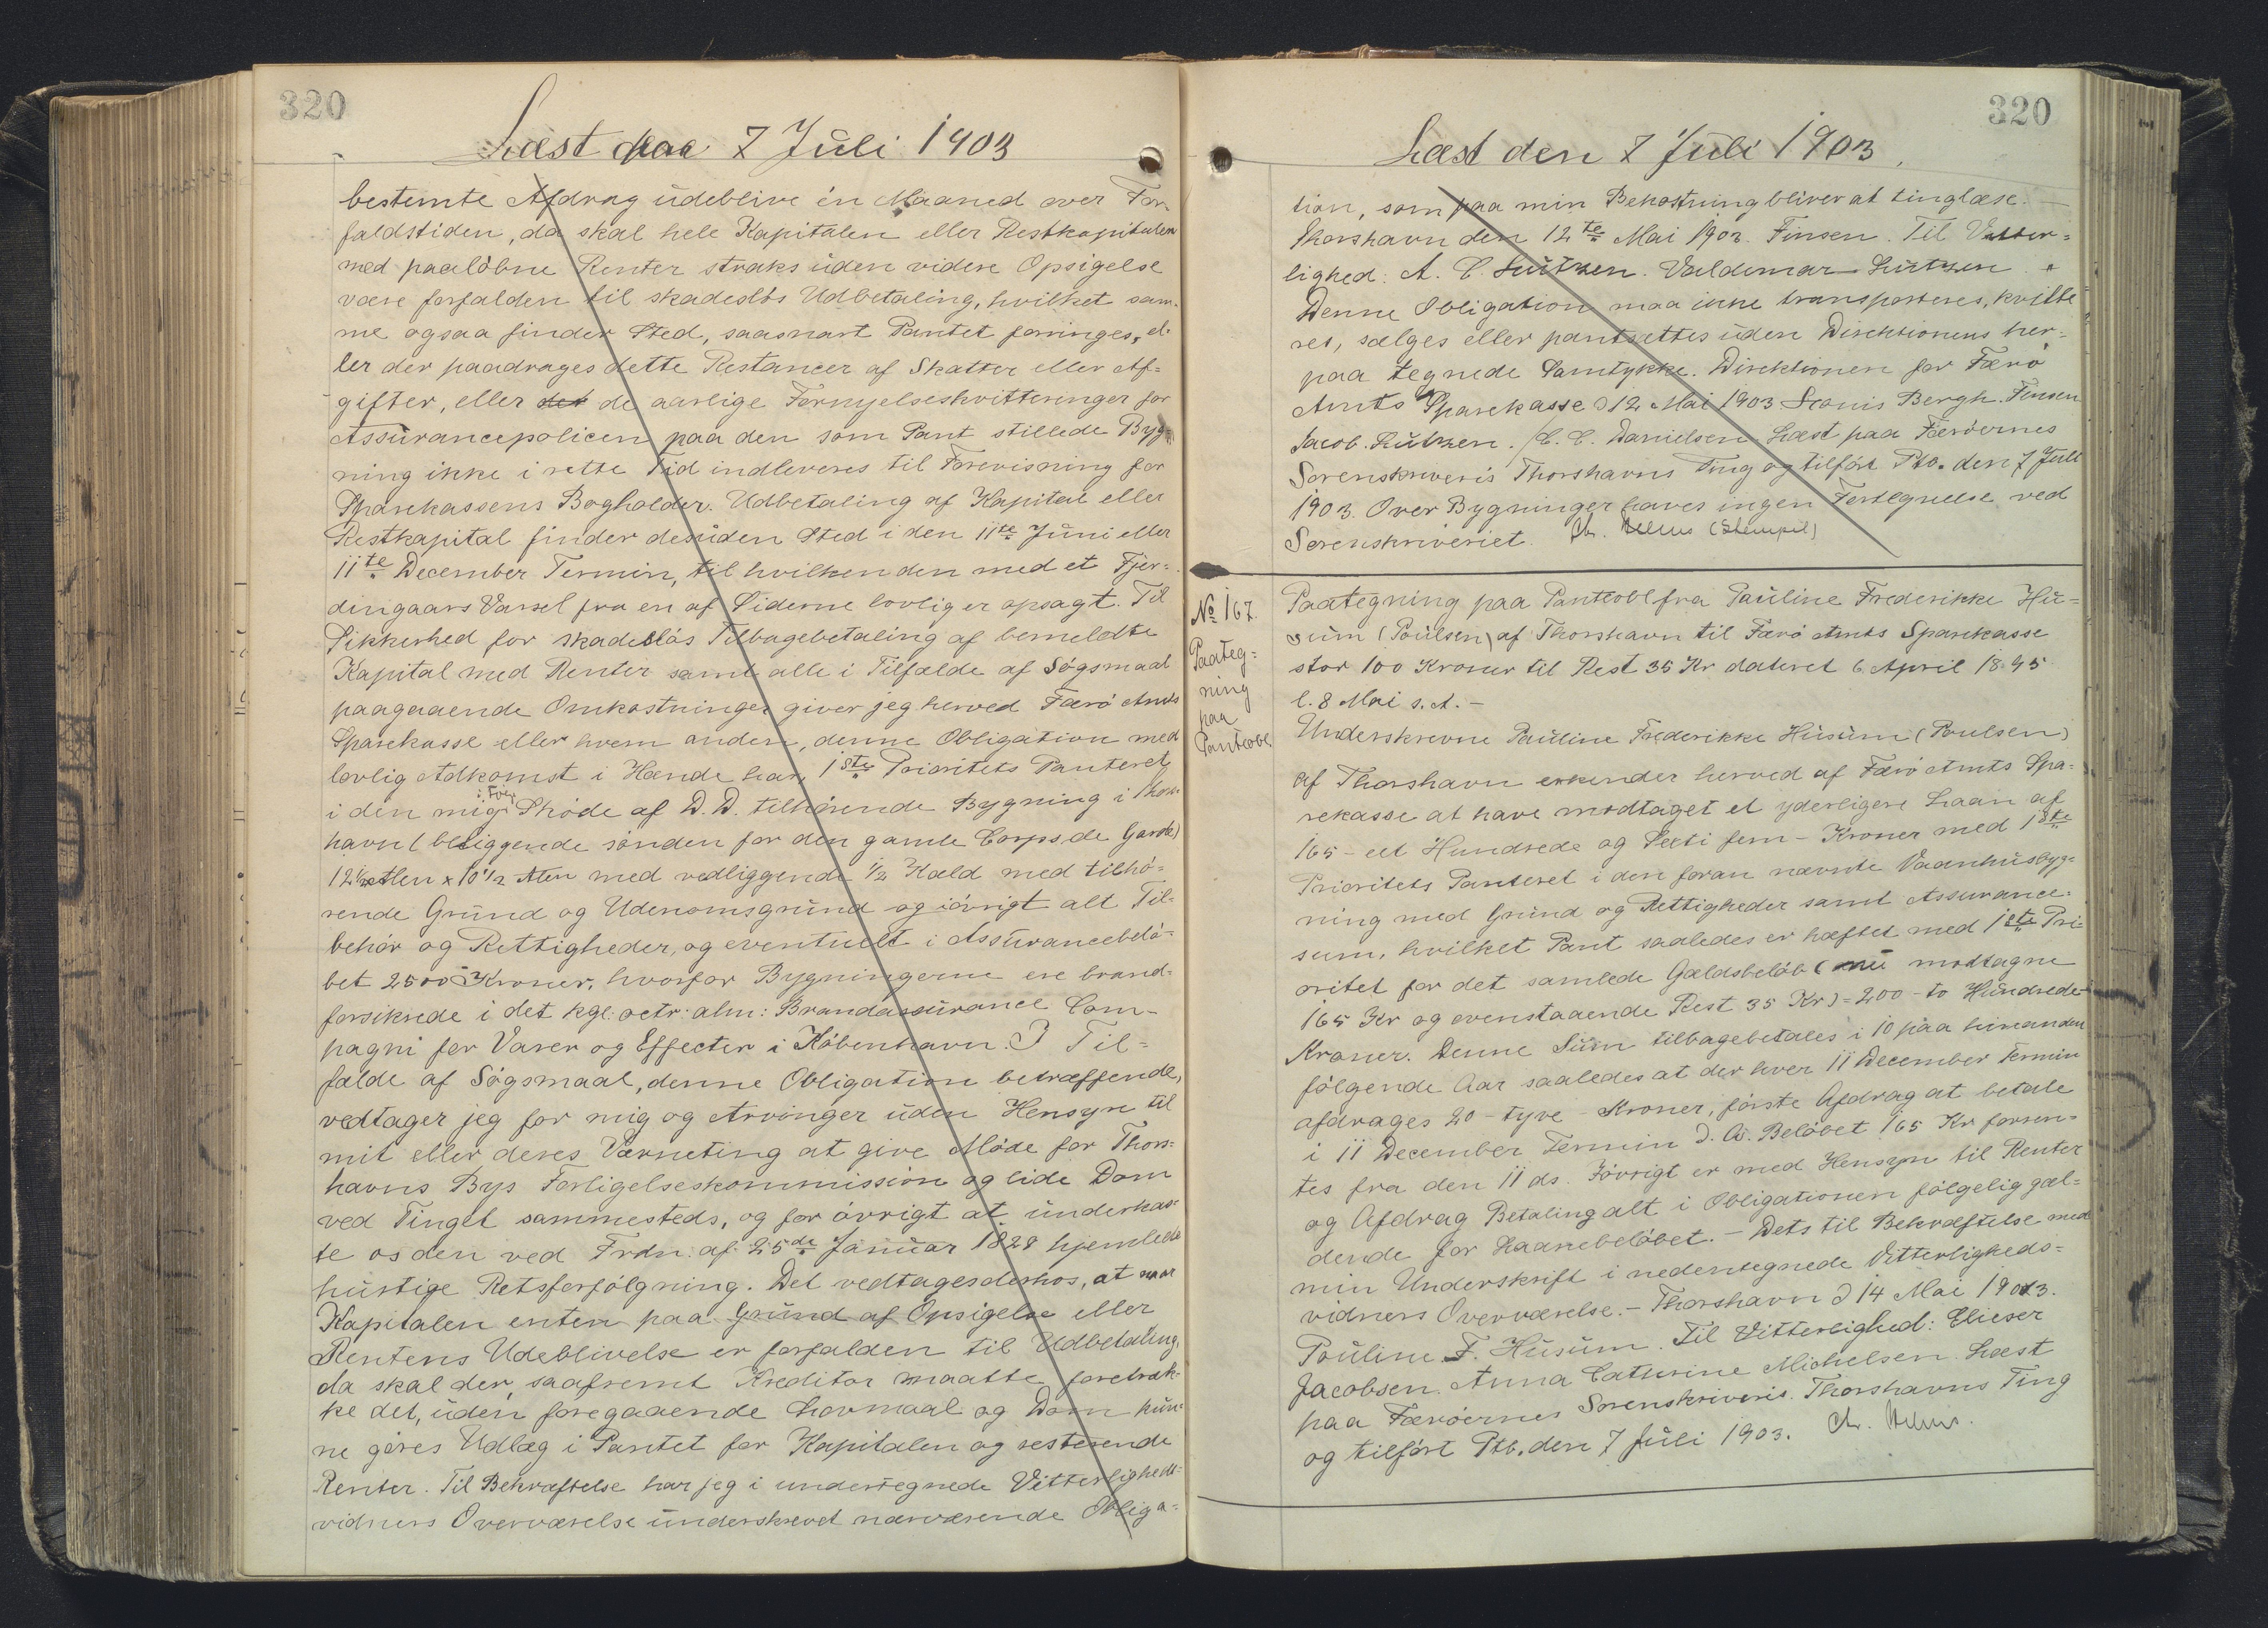 320
Læst paa 7 Juli 1903
bestemte Afdrag udeblive én Maaned over For-
faldstiden, da skal hele Kapitalen eller Restkapitalen
med paaløbne Renter straks uden videre Opsigelse
være forfalden til skadesløs Udbetaling, hvilket sam-
me ogsaa finder Sted, saasnart Pantet forringes, el-
ler der paadrages dette Restancer af Skatter eller Af=
gifter, eller de aarlige Fornyelseskvitteringer for
Assurancepolicen paa den som Pant stillede Byg=
ning ikke i rette Tid indleveres til Forevisning for
Sparekassens Bogholder. Udbetaling af Kapital eller
Restkapital finder desuden Sted i den 11te Juni eller
11te December Termin, til hvilken den med et Fjer=
dingaars Varsel fra en af Siderne lovlig er opsagt. Til
Sikkerhed for skadesløs Tilbagebetaling af bemeldte
Kapital med Renter samt alle i Tilfælde af Søgsmaal
paagaaende Omkostninger giver jeg herved Færø Amts
Sparekasse eller hvem anden, denne Obligation med
lovlig Adkomst i Hænde har, 1ste Prioritets Panteret
i den mig i Følge Skøde af D. D. tilhørende Bygning i Thors
havn (beliggende sønden for den gamle Corps de Garde)
12½ Alen x 10½ Alen med vedliggende ½ Kæld med tilhø-
rende Grund og Udenomsgrund og iøvrigt alt Til-
behør og Rettigheder, og eventuelt i Assurancebelø-
bet 2500 Kroner, hvorfor Bygningerne ere brand-
forsikrede i det kgl: octr: alm: Brandassurance Com-
pagni for Varer og Effecter i København. I Til-
fælde af Søgsmaal, denne Obligation betræffende,
vedtager jeg for mig og Arvinger uden Hensyn til
mit eller deres Værneting at give Møde for Thors-
havns Bys Forligelseskommission og lide Dom
ved Tinget sammesteds, og for øvrigt at underkas-
te os den ved Frdn: af 25de Januar 1828 hjemlede
hurtige Retsforfølgning. Det vedtages derhos, at naar
Kapitalen enten paa Grund af Opsigelse eller
Rentens Udeblivelse er forfalden til Udbetaling,
da skal der, saafremt Kreditor maatte foretræk-
ke det, uden foregaaende Lovmaal og Dom kun-
ne gøres Udlæg i Pantet for Kapitalen og resterende
Renter. Til Bekræftelse har jeg i undertegnede Vitterligheds-
vidners Overværelse underskrevet nærværende Obliga=
320
Læst den 7 Juli 1903.
tion, som paa min Bekostning bliver at tinglæse. —
Thorshavn den 12te Mai 1902. Finsen. Til Vitter=
lighed: A. C. Lützen. Valdemar Lützen
Denne Obligation maa ikke transporteres, kvitte
res, sælges eller pantsættes uden Direktionens her=
paa tegnede Samtykke. Direktionen for Færø
Amts Sparekasse d 12 Mai 1903 Louis Bergh. Finsen
Jacob. Lützen. /C. C. Danielsen. Læst paa Færøernes
Sorenskriveris Thorshavns Ting og tilført Ptb. den 7 Juli
1903. Over Bygninger haves ingen Fortegnelse ved
Sorenskriveriet. (Stempel)
No 167.
Paateg=
ning
paa
Panteobl
Paategning paa Panteobl fra Pauline Frederikke Hu=
sum (Poulsen) af Thorshavn til Færø Amts Sparekasse
stor 100 Kroner til Rest 35 Kr dateret 6 April 1895
l. 8 Mai s. A. —
Underskrevne Pauline Frederikke Husum (Poulsen)
af Thorshavn erkender herved af Færø Amts Spa=
rekasse at have modtaget et yderligere Laan af
165 - eet Hundrede og Sexti fem - Kroner med 1ste
Prioritets Panteret i den foran nævnte Vaanhusbyg=
ning med Grund og Rettigheder samt Assurance=
sum, hvilket Pant saaledes er hæftet med 1ste Pri-
oritet for det samlede Gældsbeløb (nu modtagne
165 Kr og ovenstaaende Rest 35 Kr) = 200 - to Hundrede
Kroner. Denne Sum tilbagebetales i 10 paa hinanden
følgende Aar saaledes at der hver 11 December Termin
afdrages 20 - tyve - Kroner, første Afdrag at betale
i 11 December Termin d. A. Beløbet 165 Kr forren=
tes fra den 11 ds. Iøvrigt er med Hensyn til Renter
og Afdrag Betaling alt i Obligationen følgelig gæl=
dende for Laanebeløbet. — Dets til Bekræftelse med
min Underskrift i nedentegnede Vitterligheds=
vidners Overværelse. — Thorshavn d 14 Mai 1903.
Pauline F. Husum. Til Vitterlighed: Elieser
Jacobsen. Anna Cathrine Michelsen. Læst
paa Færøernes Sorenskriveris. Thorshavns Ting
og tilført Ptb. den 7 Juli 1903.